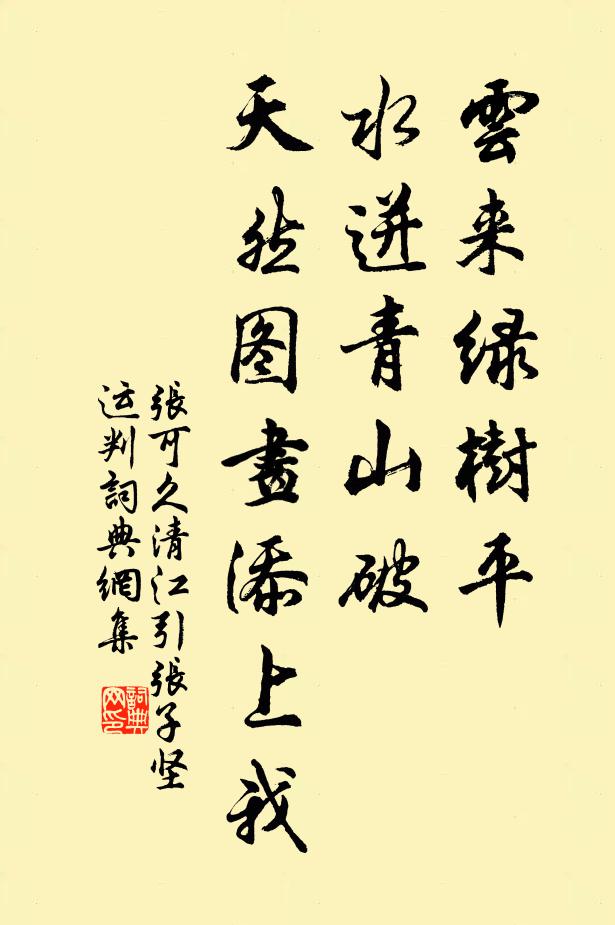 雲来绿樹平
水迸青山破
天然图畫添上我
張可久清江引張子坚
运判詞典網集
詞典网印